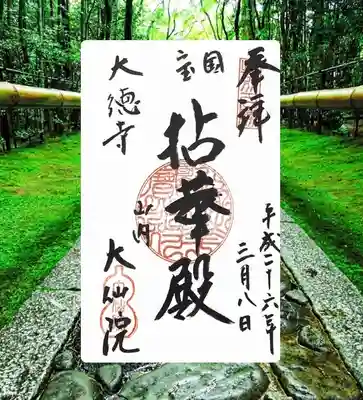 奉拝
平成二十六年
三月八日
国宝
拈華殿
大徳寺
山内
大仙院